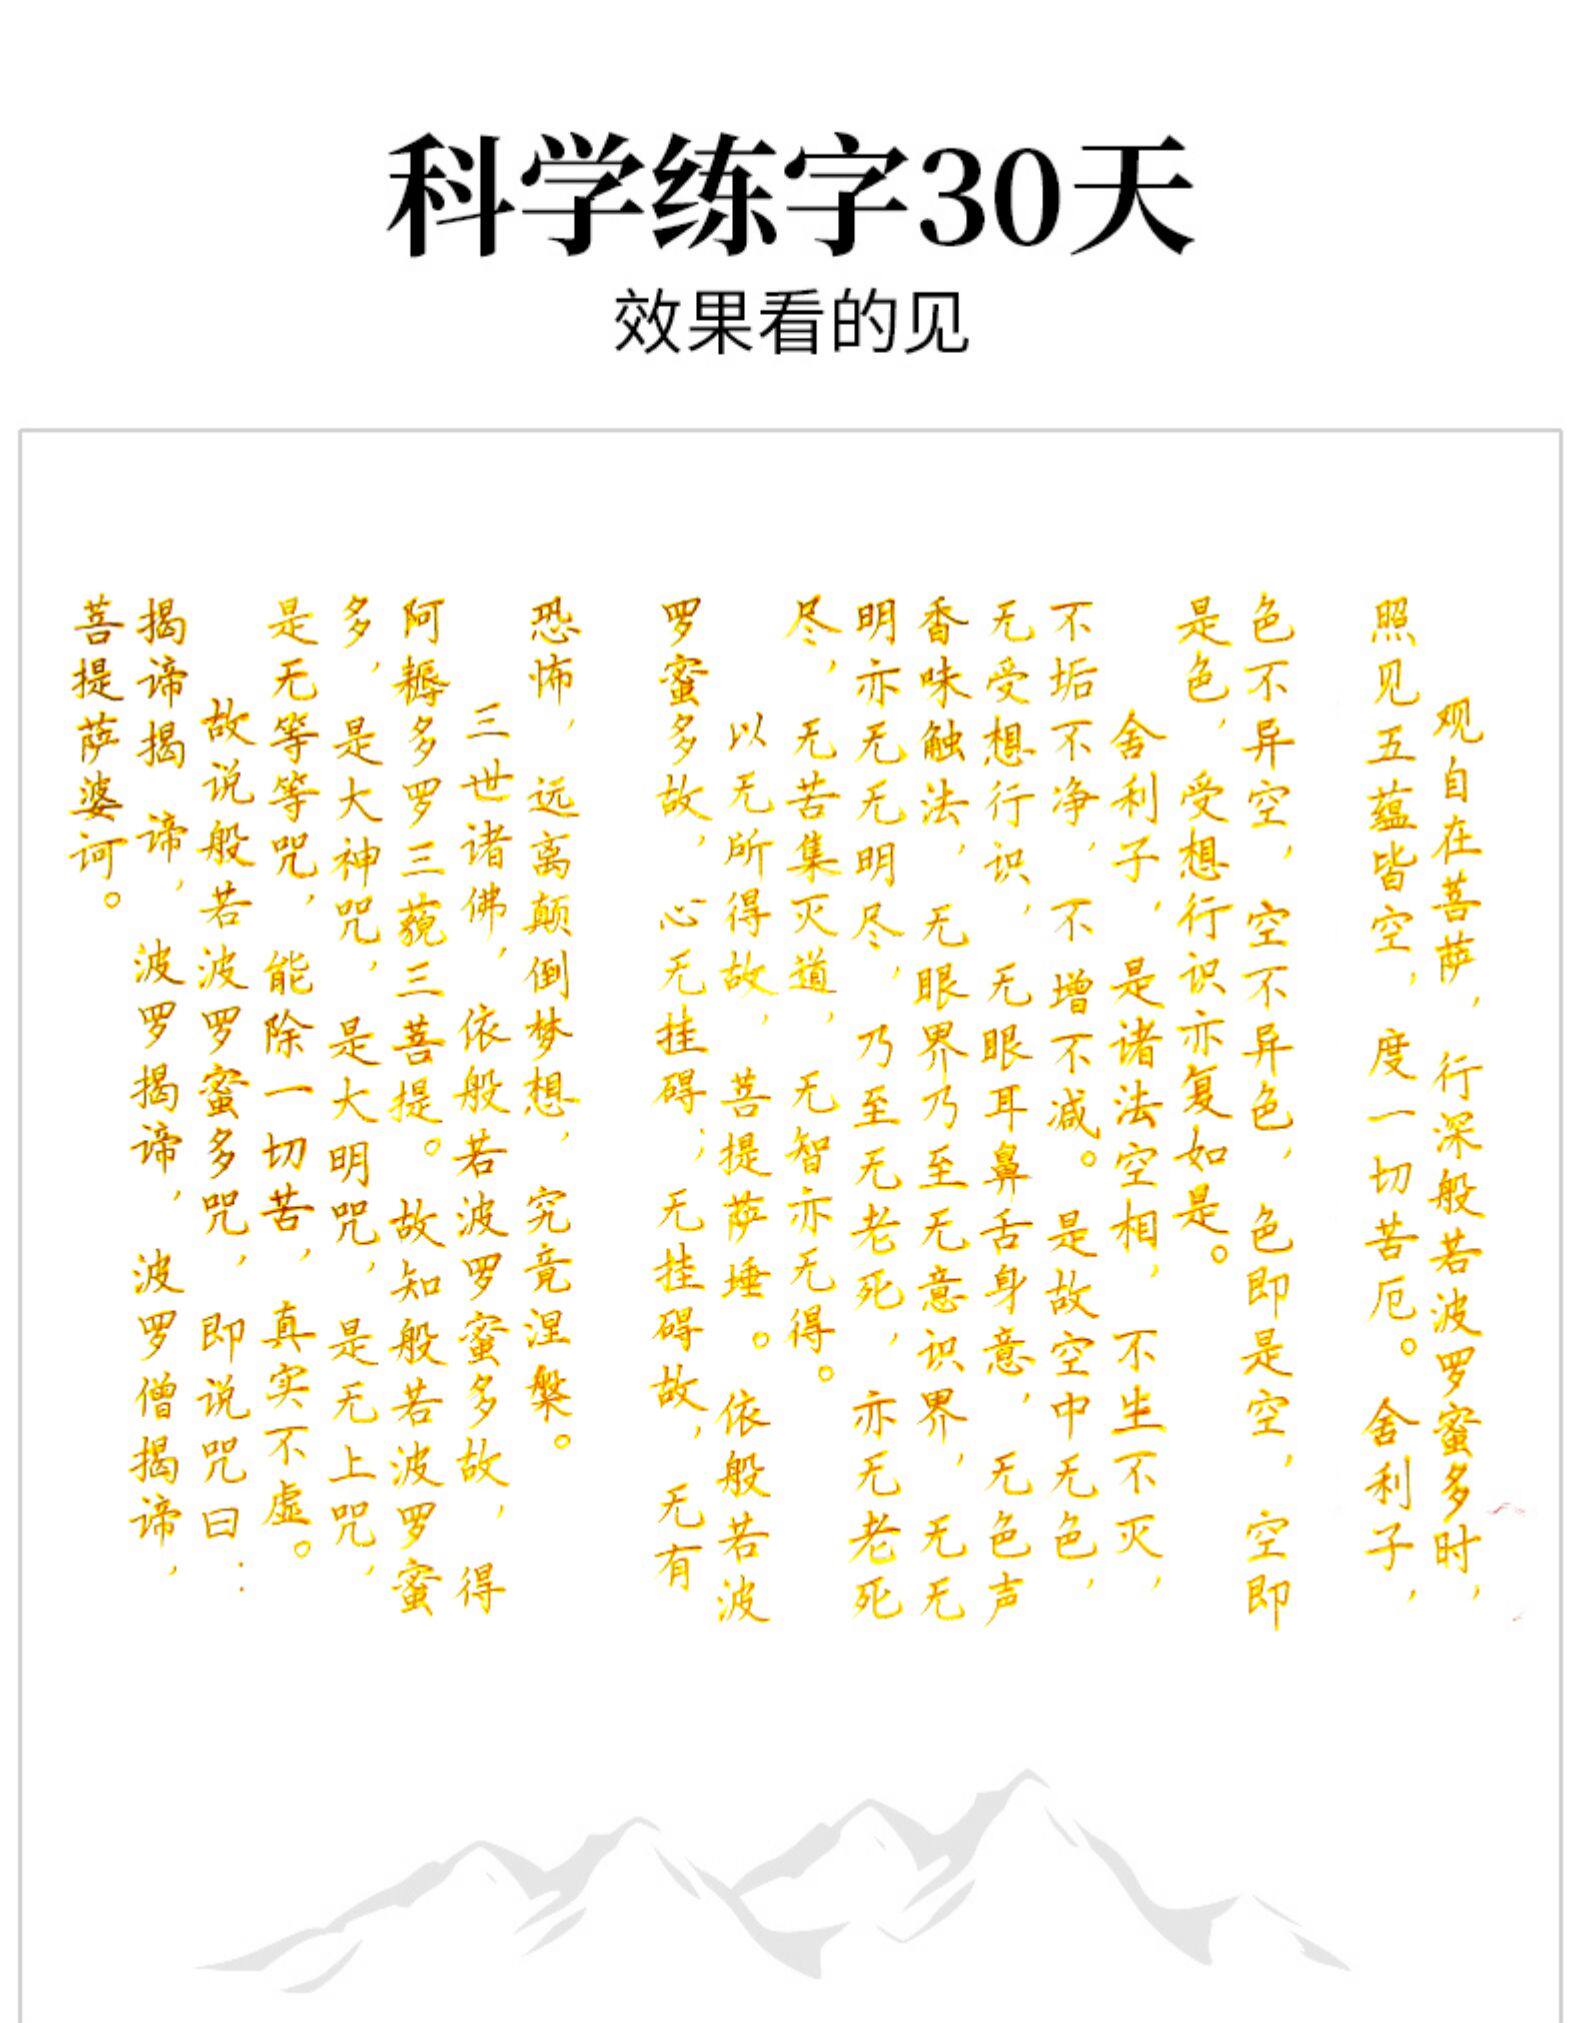 科学练字30天
效果看的见
观自在菩萨，行深般若波罗蜜多时，
照见五蕴皆空，度一切苦厄。舍利子，
色不异空，空不异色，色即是空，空即
是色，受想行识亦复如是。
舍利子，是诸法空相，不生不灭，
不垢不净，不增不减。是故空中无色，
无受想行识，无眼耳鼻舌身意，无色声
香味触法，无眼界乃至无意识界，无无
明亦无无明尽，乃至无老死，亦无老死
尽，无苦集灭道，无智亦无得。
以无所得故，菩提萨埵。依般若波
罗蜜多故，心无挂碍；无挂碍故，无有
恐怖，远离颠倒梦想，究竟涅槃。
三世诸佛，依般若波罗蜜多故，得
阿耨多罗三藐三菩提。故知般若波罗蜜
多，是大神咒，是大明咒，是无上咒，
是无等等咒，能除一切苦，真实不虚。
故说般若波罗蜜多咒，即说咒曰：
揭谛揭谛，波罗揭谛，波罗僧揭谛，
菩提萨婆诃。